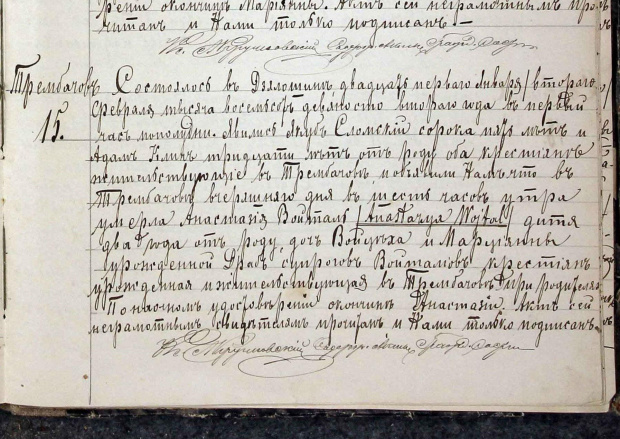 рении окончины Марянны. Актъ сей неграмотнымъ про
читанъ и Нами только подписанъ —
Трембачовъ
15.
Состоялось въ Дзялошинѣ двадцать перваго Января / втораго
Февраля тысяча восемьсотъ девяносто втораго года въ первый
часъ пополудни. Явились Якубъ Сломскій сорока пять лѣтъ и
Адамъ тридцати лѣтъ отъ роду оба крестьяне
жительствующіе въ Трембачовѣ и объявили Намъ что въ
Трембачовѣ вчерашняго дня въ шесть часовъ утра
умерла Анастазія Войталъ /Anastazya Wojtal/ дитя
два года отъ роду дочь Войцѣха и Марцянны
урожденной супруговъ Войталовъ крестьянъ
урожденная и жительствующая въ Трембачовѣ при родителяхъ
По наочномъ удостовѣреніи окончины Анастазіи. Актъ сей
неграмотнымъ свидѣтелямъ прочитанъ и Нами только подписанъ